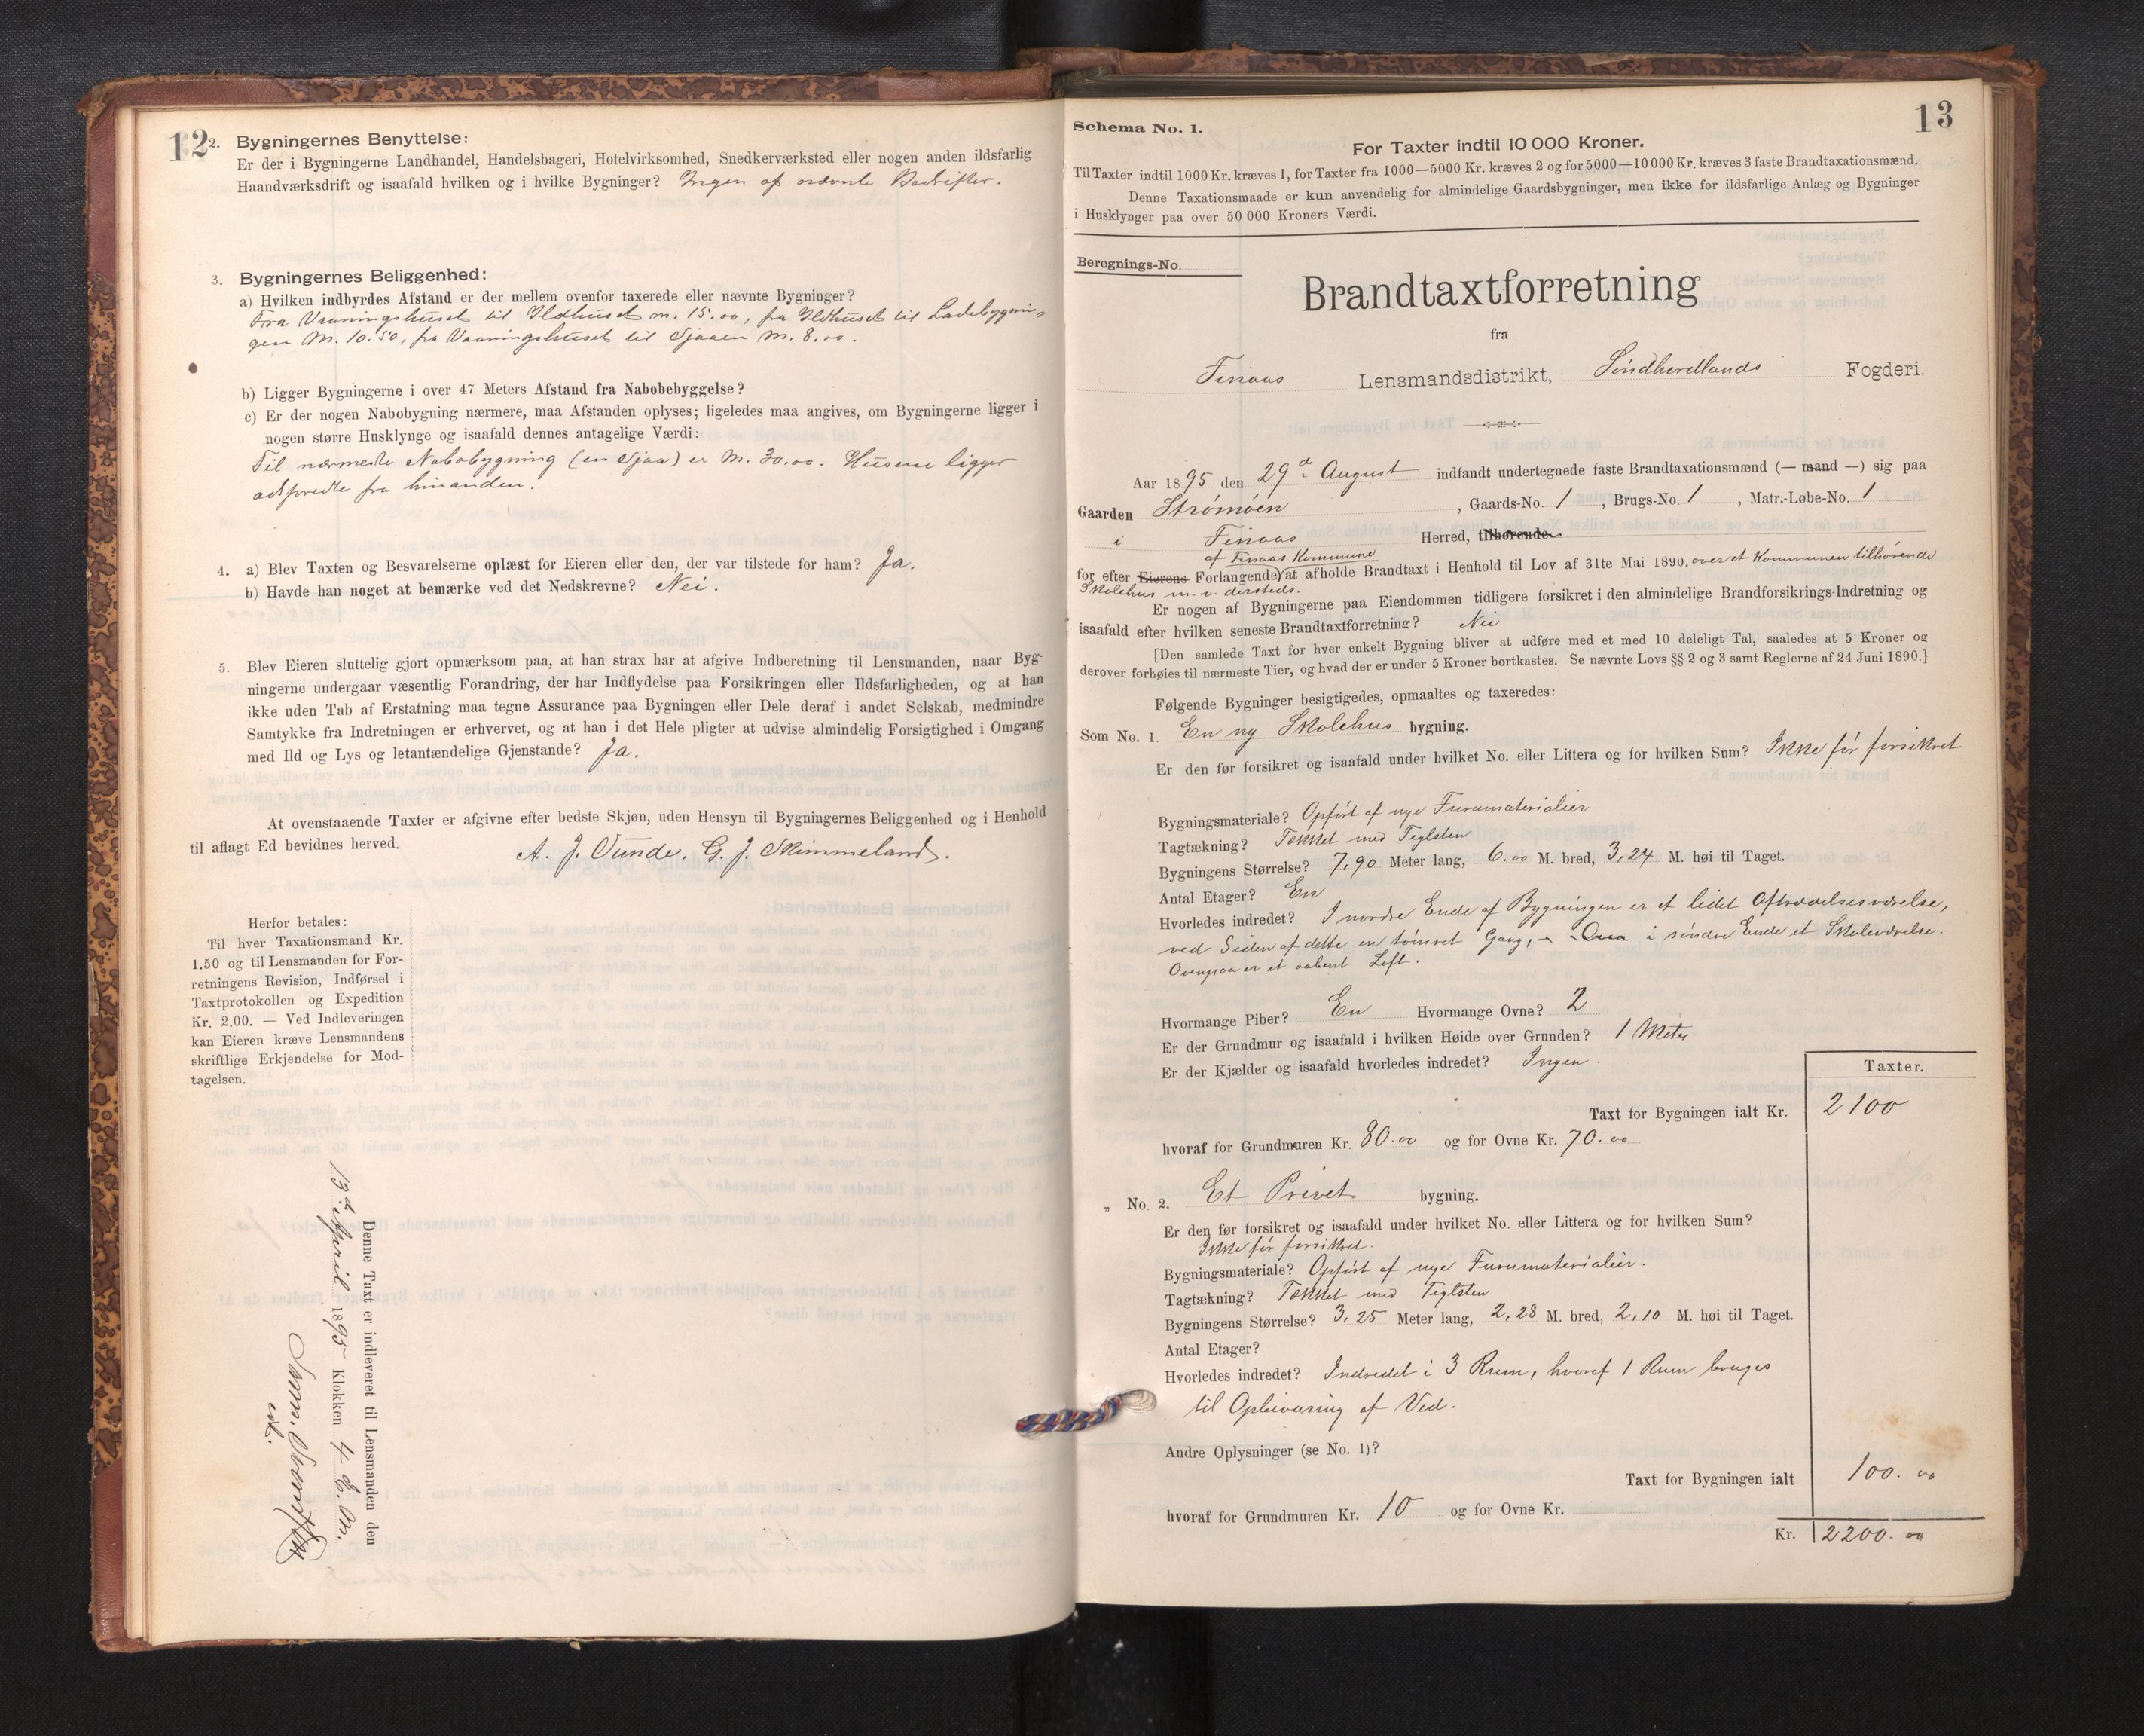 12
2. Bygningernes Benyttelse:
Er der i Bygningerne Landhandel, Handelsbageri, Hotelvirksomhed, Snedkerværksted eller nogen anden ildsfarlig
Haandværksdrift og isaafald hvilken og i hvilke Bygninger? Ingen af nævnte Bedrifter.
3. Bygningernes Beliggenhed:
a) Hvilken indbyrdes Afstand er der mellem ovenfor taxerede eller nævnte Bygninger?
Fra Vaaningshuset til Ildhuset m. 15.00, fra Ildhuset til Ladebygnin-
gen M. 10.50, fra Vaaningshuset til Sjaaen M. 8.00.
b) Ligger Bygningerne i over 47 Meters Afstand fra Nabobebyggelse?
c) Er der nogen Nabobygning nærmere, maa Afstanden oplyses; ligeledes maa angives, om Bygningerne ligger i
nogen større Husklynge og isaafald dennes antagelige Værdi:
Til nærmeste Nabobygning (en Sjaa) er M. 30.00. Husene ligger
adspredte fra hinanden.
4. a) Blev Taxten og Besvarelserne oplæst for Eieren eller den, der var tilstede for ham? Ja.
b) Havde han noget at bemærke ved det Nedskrevne? Nei.
5. Blev Eieren sluttelig gjort opmærksom paa, at han strax har at afgive Indberetning til Lensmanden, naar Byg-
ningerne undergaar væsentlig Forandring, der har Indflydelse paa Forsikringen eller Ildsfarligheden, og at han
ikke uden Tab af Erstatning maa tegne Assurance paa Bygningen eller Dele deraf i andet Selskab, medmindre
Samtykke fra Indretningen er erhvervet, og at han i det Hele pligter at udvise almindelig Forsigtighed i Omgang
med Ild og Lys og letantændelige Gjenstande? Ja.
At ovenstaaende Taxter er afgivne efter bedste Skjøn, uden Hensyn til Bygningernes Beliggenhed og i Henhold
til aflagt Ed bevidnes herved.
A. J. Tunde. G. J. Skimmeland.
Herfor betales:
Til hver Taxationsmand Kr.
1.50 og til Lensmanden for For-
retningens Revision, Indførsel i
Taxtprotokollen og Expedition
Kr. 2.00. — Ved Indleveringen
kan Eieren kræve Lensmandens
skriftlige Erkjendelse for Mod-
tagelsen.
Denne Taxt er indleveret til Lensmanden den
13de April 1895 Klokken 4 E. M.
13
Schema No. 1.
For Taxter indtil 10 000 Kroner.
Til Taxter indtil 1000 Kr. kræves 1, for Taxter fra 1000—5000 Kr. kræves 2 og for 5000—10 000 Kr. kræves 3 faste Brandtaxationsmænd.
Denne Taxationsmaade er kun anvendelig for almindelige Gaardsbygninger, men ikke for ildsfarlige Anlæg og Bygninger
i Husklynger paa over 50 000 Kroners Værdi.
Beregnings-No.
Brandtaxtforretning
fra
Finaas Lensmandsdistrikt, Søndhordlands Fogderi
Aar 1895 den 29de August indfandt undertegnede faste Brandtaxationsmænd (— mand —) sig paa
Gaarden Strømøen, Gaards-No. 1, Brugs-No. 1, Matr.-Løbe-No. 1
i Finaas Herred, tilhørende
af Finaas Kommune
for efter Eierens Forlangende at afholde Brandtaxt i Henhold til Lov af 31te Mai 1890. over et Kommunen tilhørende
Skolehus m. v. dersteds.
Er nogen af Bygningerne paa Eiendommen tidligere forsikret i den almindelige Brandforsikrings-Indretning og
isaafald efter hvilken seneste Brandtaxtforretning? Nei
[Den samlede Taxt for hver enkelt Bygning bliver at udføre med et med 10 deleligt Tal, saaledes at 5 Kroner og
derover forhøies til nærmeste Tier, og hvad der er under 5 Kroner bortkastes. Se nævnte Lovs §§ 2 og 3 samt Reglerne af 24 Juni 1890.]
Følgende Bygninger besigtigedes, opmaaltes og taxeredes:
Som No. 1. En ny Skolehus bygning.
Er den før forsikret og isaafald under hvilket No. eller Littera og for hvilken Sum? Ikke før forsikret
Bygningsmateriale? Opført af nye Furumaterialier
Tagtækning? Tækket med Teglsten
Bygningens Størrelse? 7,90 Meter lang, 6.00 M. bred, 3,24 M. høi til Taget.
Antal Etager? En
Hvorledes indredet? I nordre Ende af Bygningen er et lidet Aftrædelsesværelse,
ved Siden af dette en tømret Gang, i søndre Ende et Skoleværelse.
Ovenpaa er et aabent Loft.
Hvormange Piber? En Hvormange Ovne? 2
Er der Grundmur og isaafald i hvilken Høide over Grunden? 1 Meter
Er der Kjælder og isaafald hvorledes indredet? Ingen.
Taxter.
Taxt for Bygningen ialt Kr. 2100
hvoraf for Grundmuren Kr. 80.00 og for Ovne Kr. 70.00
„ No. 2. Et Privet bygning.
Er den før forsikret og isaafald under hvilket No. eller Littera og for hvilken Sum?
Ikke før forsikret.
Bygningsmateriale? Opført af nye Furumaterialier.
Tagtækning? Tækket med Teglsten
Bygningens Størrelse? 3,25 Meter lang, 2,28 M. bred, 2,10 M. høi til Taget.
Antal Etager?
Hvorledes indredet? Indredet i 3 Rum, hvoraf 1 Rum bruges
til Opbevaring af Ved.
Andre Oplysninger (se No. 1)?
Taxt for Bygningen ialt 100.00
hvoraf for Grundmuren Kr. 10 og for Ovne Kr.
Kr. 2200.00